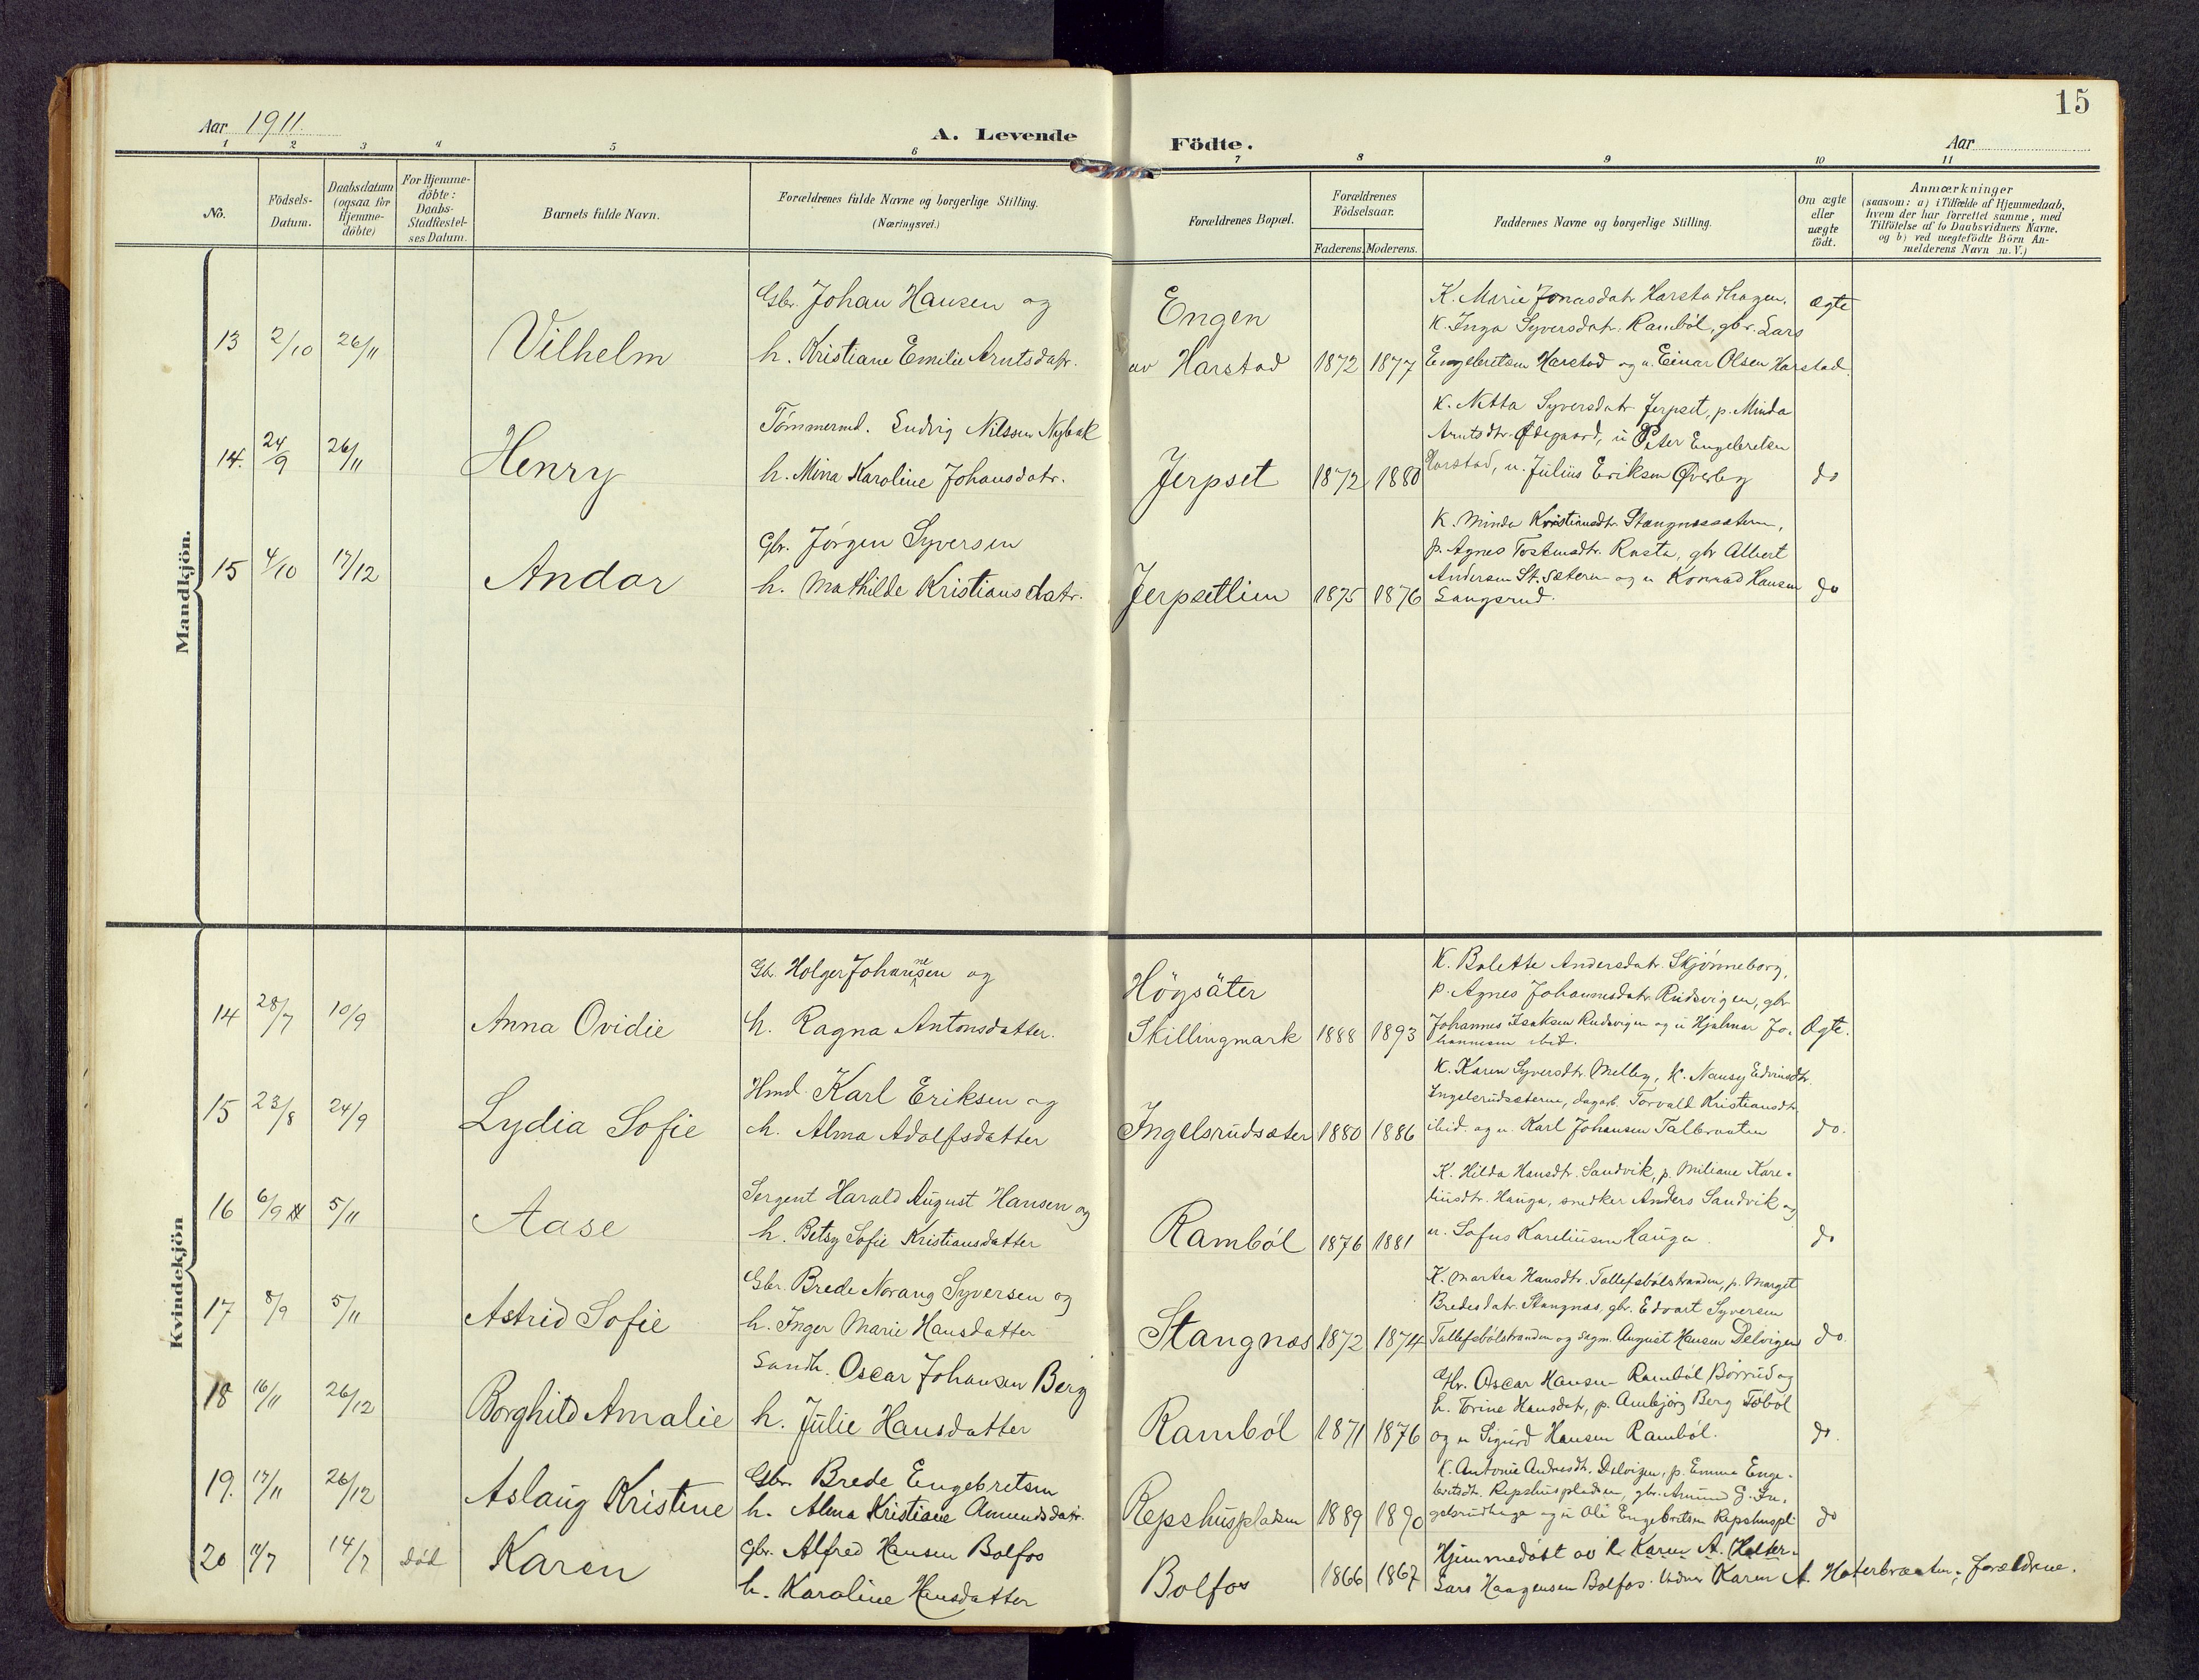 15
Aar 1911.
A. Levende Födte.
Aar
1 2 3 4 5 6 7 8 9 10 11
No.
Födsels-
Datum.
Daabsdatum
(ogsaa for
Hjemme-
döbte)
For Hjemme-
döbte:
Daabs-
Stadfæstel-
ses Datum.
Barnets fulde Navn.
Forældrenes fulde Navne og borgerlige Stilling.
(Næringsvei.)
Forældrenes Bopæl.
Forældrenes
Födselsaar.
Faderens. Moderens.
Faddernes Navne og borgerlige Stilling.
Om ægte
eller
uægte
födt.
Anmærkninger
(saasom: a) i Tilfælde af Hjemmedaab,
hvem der har forrettet samme, med
Tilföielse af to Daabsvidners Navne,
og b) ved uægtefödte Börn An-
melderens Navn m. V.)
Mandkjön.
13 2/10 26/11 Vilhelm
Gbr. Johan Hansen og
h. Kristiane Emilie Arntsdatr.
Engen
av Harstad 1872 1877
K. Marie Jonasdatr. Harstadhagen.
K. Inga Syversdatr. Ramböl, gbr. Lars
Engebretsen Harstad og u. Einar Olsen Harstad.
ægte
14. 24/9 26/11 Henry
Tömmermd. Ludvig Nilssen Nybak
h. Mina Karoline Johansdatr.
Jerpset 1872 1880
K. Netta Syversdatr. Jerpset, p. Minda
Arntsdtr. Ødegaard, u Peter Engebretsen
Harstad, u. Julius Eriksen Øverby
do
15 4/10 17/12 Andor
Gbr. Jörgen Syversen
h. Mathilde Kristiansdatr.
Jerpsetlien 1875 1876
K. Minda Kristiansdtr. Stangnessætern,
p. Agnes Tostensdtr. Rasta, gbr Albert
Andersen St. Sætern og u Konrad Hansen
Langsrud.
do
Kvindekjön
14 28/7 10/9 Anna Ovidie
Gbr. Holger Johannesen og
h. Ragna Antonsdatter.
Högsäter
Skillingmark 1888 1893
K. Bolette Andersdatr. Skjönneborg,
p. Agnes Johannesdatr. Rudsvigen, gbr
Johannes Isaksen Rudsvigen og u Hjalmar Jo-
hannesen ibid.
Ægte.
15 23/8 24/9 Lydia Sofie
Hmd. Karl Eriksen og
h. Alma Adolfsdatter
Ingelsrudsæter 1880 1886
K. Karen Syversdtr. Melby, K. Nansy Edvinsdtr.
Ingelsrudsæterne, dagarb. Torvald Kristiansdtr,
ibid. og u. Karl Johansen Talbraaten
do.
16 6/9 5/11 Aase
Sergent Harald August Hansen og
h. Betsy Sofie Kristiansdatter
Ramböl 1876 1881
K. Hilda Hansdtr. Sandvik, p. Miliane Kare-
liusdtr. Hauga, snedker Anders Sandvik og
u. Sofus Kareliusen Hauga.
do
17 8/9 5/11 Astrid Sofie
Gbr. Brede Norang Syversen og
h. Inger Marie Hansdatter
Stangnes 1872 1874
K. Martea Hansdtr. Tollefsbölstranden, p. Margit
Bredesdatr. Stangnæs, gbr. Edvart Syversen
Tollefsbölstranden og sagm. August Hansen Delvigen
do.
18 16/11 26/12 Borghild Amalie
Landh. Oscar Johansen Berg
h. Julie Hansdatter
Ramböl 1871 1876
Gbr. Oscar Hansen Ramböl Börrud og
h. Torine Hansdatr, p. Ambjörg Berg Töböl
og u Sigurd Hansen Ramböl.
do.
19. 17/11 26/12 Aslaug Kristine
Gbr. Brede Engebretsen
h. Alma Kristiane Amundsdatr.
Repshuspladsen 1889 1890
K. Antonie Andresdtr. Delvigen, p. Emma Enge-
bretsdtr. Repshuspladsen, gbr. Amund G. In-
gelsrudhage og u Ole Engebretsen Repshuspl.
do
20 11/7 14/7 död Karen
Gbr. Alfred Hansen Bolfos
h. Karoline Hansdatter
Bolfos 1866 1867
Hjemmedöbt av K Karen A. Hater-
Lars Haagensen Bolfos. Vidner Karen A. Haterbraaten, forældrene.